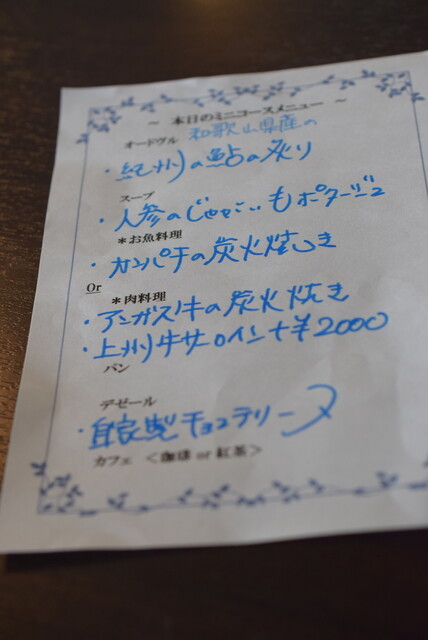 ～ 本日のミニコースメニュー ～
オードヴル 和歌山県産の
・紀州の鮎の炙り
スープ
・人参のじゃがいもポタージュ
*お魚料理
・カンパチの炭火焼き
Or
*肉料理
・アンガス牛の炭火焼き
・上州牛サーロイン+¥2000
パン
デゼール
・自家製チョコテリーヌ
カフェ <珈琲 or 紅茶>